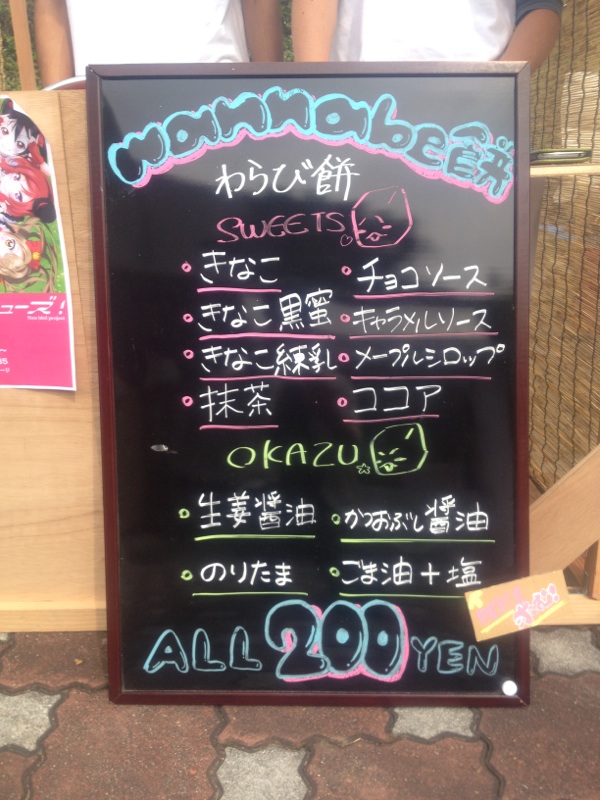 wannabe餅
わらび餅
SWEETS
・きなこ
・チョコソース
・きなこ黒蜜
・キャラメルソース
・きなこ練乳
・メープルシロップ
・抹茶
・ココア
OKAZU
・生姜醤油
・かつおぶし醤油
・のりたま
・ごま油+塩
ALL 200 YEN
ューズ!